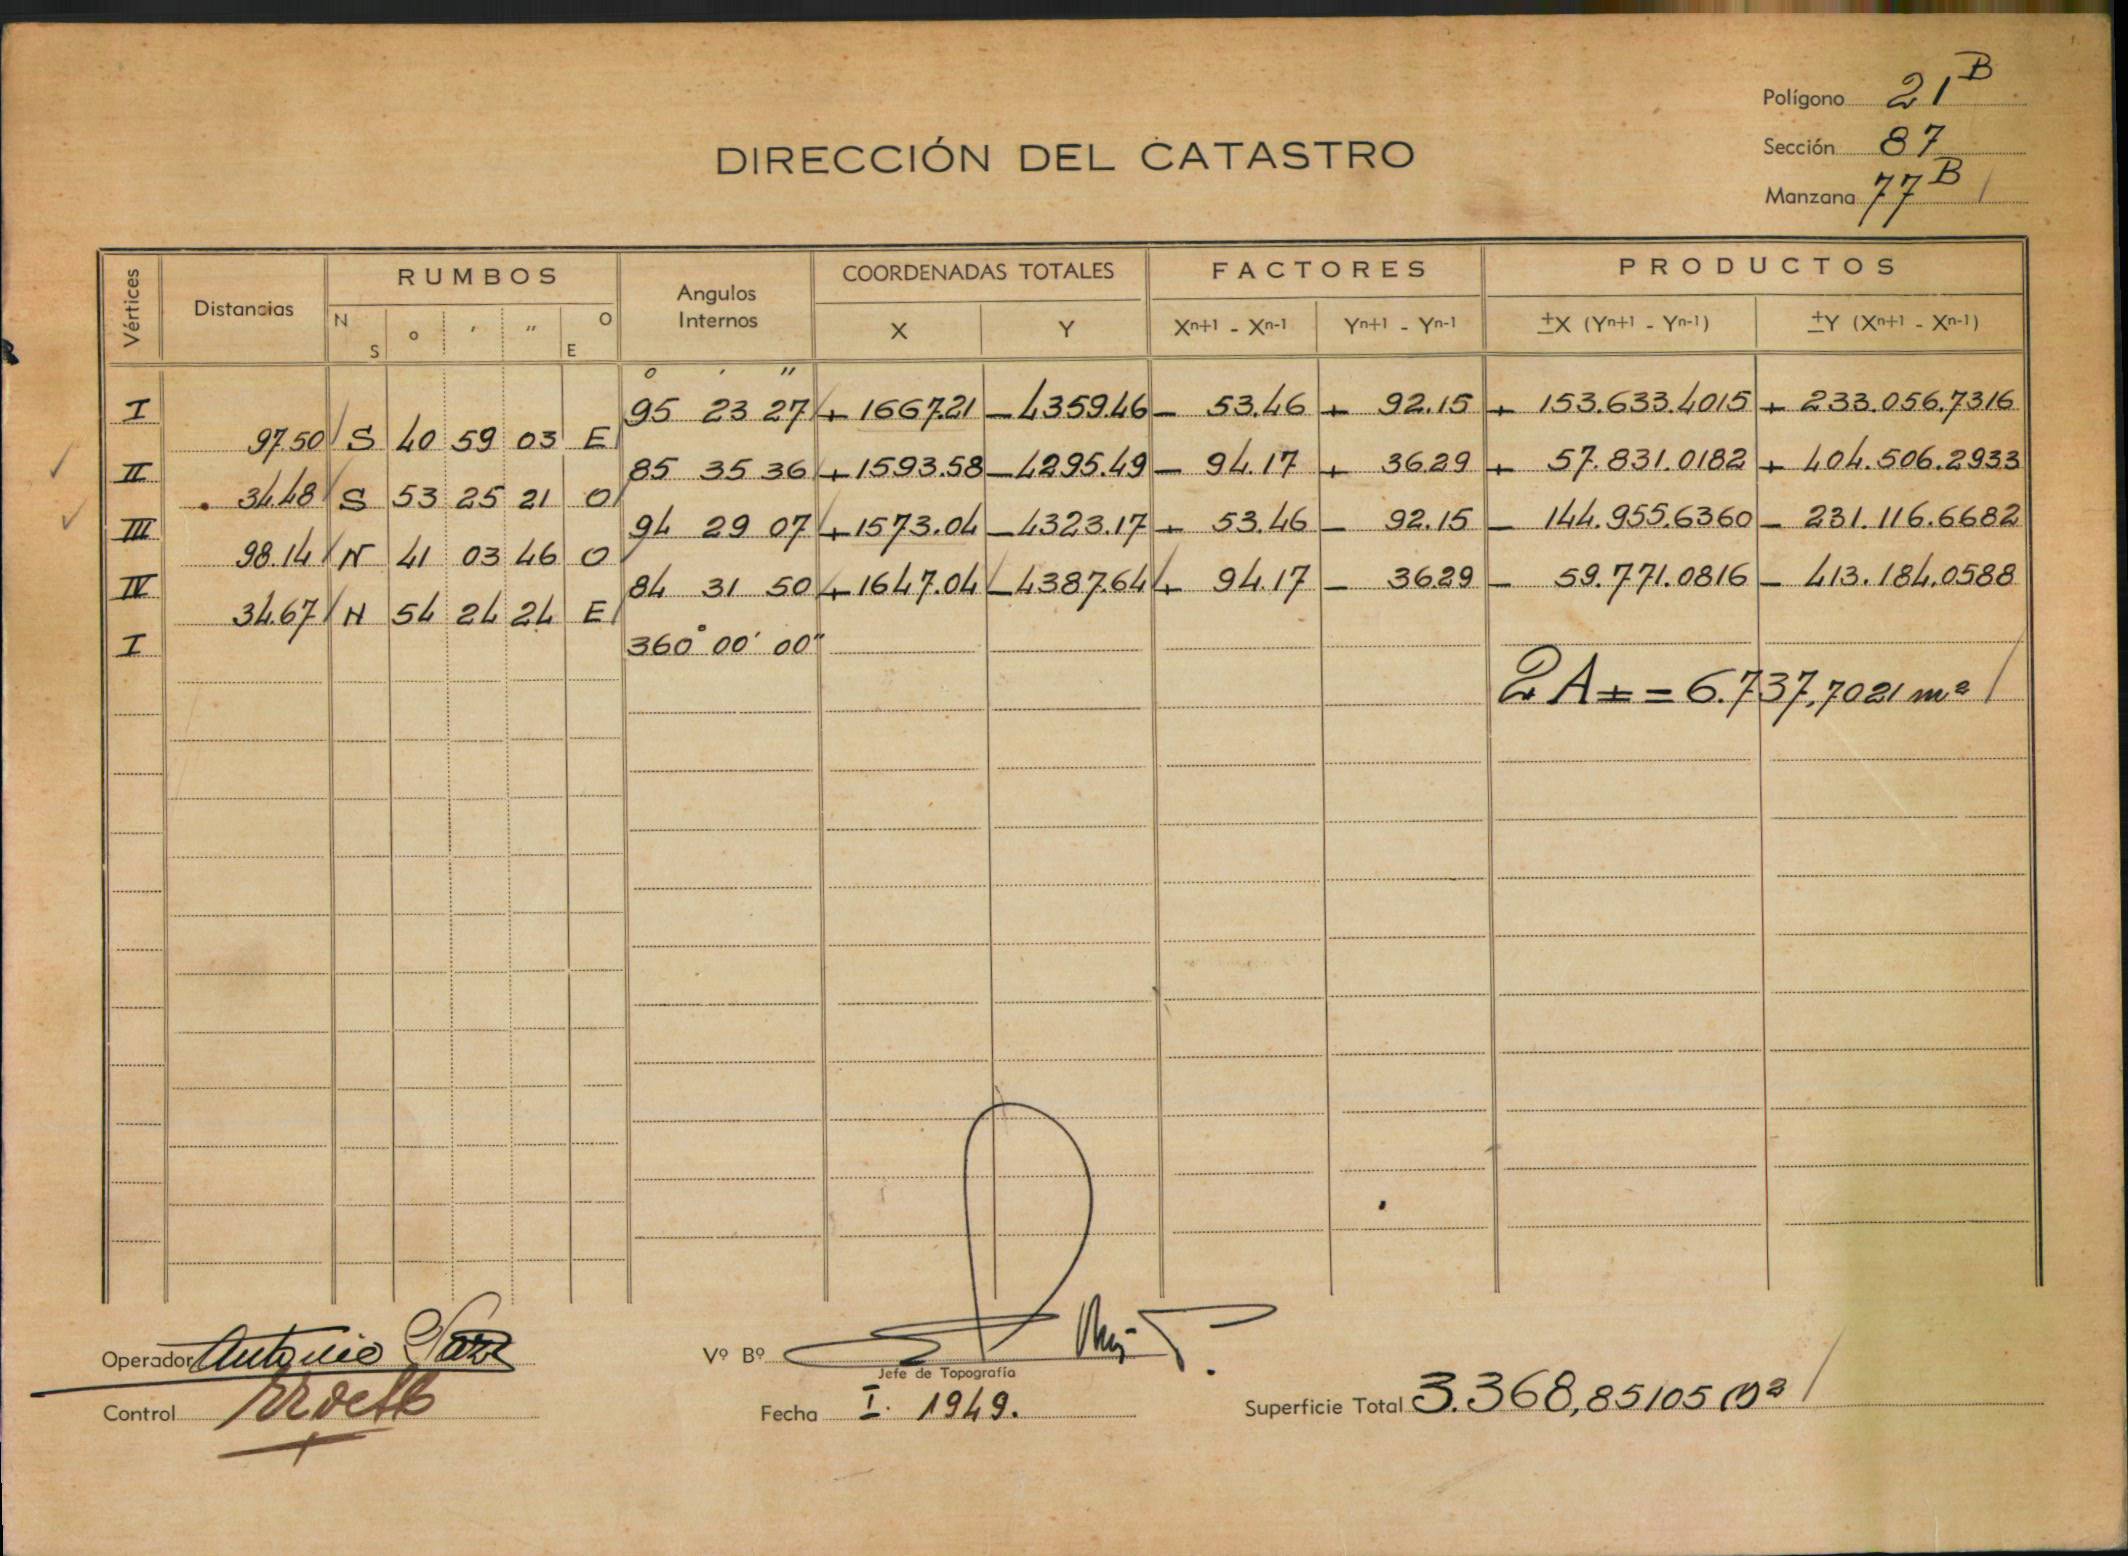 Polígono 21B
Sección 87
Manzana 77B
DIRECCIÓN DEL CATASTRO
Vértices Distancias RUMBOS Angulos Internos COORDENADAS TOTALES FACTORES PRODUCTOS
N S ° ' " O E X Y Xn+1 - Xn-1 Yn+1 - Yn-1 ±X (Yn+1 - Yn-1) ±Y (Xn+1 - Xn-1)
° ' "
I 95 23 27 + 1667.21 - 4359.46 - 53.46 + 92.15 + 153.633.4015 + 233.056.7316
97.50 S 40 59 03 E
II 85 35 36 + 1593.58 - 4295.49 - 94.17 + 36.29 + 57.831.0182 + 404.506.2933
34.48 S 53 25 21 O
III 94 29 07 + 1573.04 - 4323.17 + 53.46 - 92.15 - 144.955.6360 - 231.116.6682
98.14 N 41 03 46 O
IV 84 31 50 + 1647.04 - 4387.64 + 94.17 - 36.29 - 59.771.0816 - 413.184.0588
34.67 N 54 24 24 E
I 360° 00' 00"
2A ± = 6.737,7021 m2
Operador Antonio
Vº Bº
Jefe de Topografía
Control
Fecha I. 1949.
Superficie Total 3.368,85105 m2